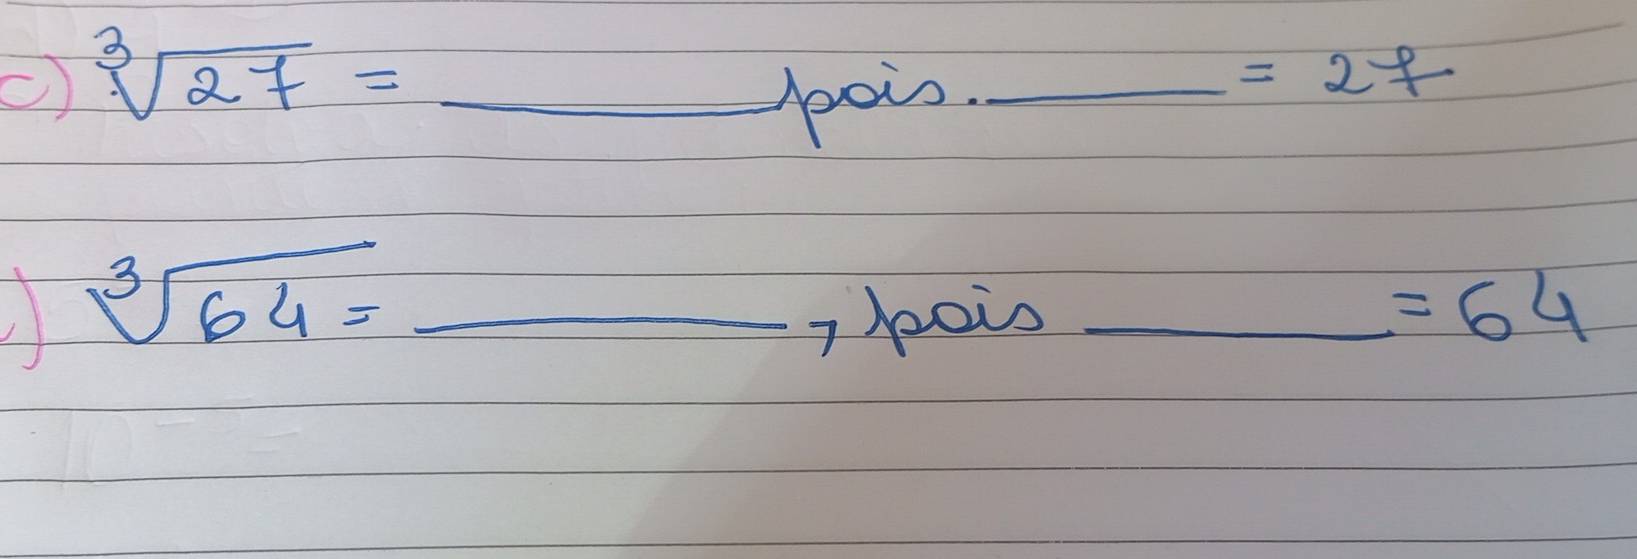 c) ∛27 = ________ pois. ______ = 27
) ∛64 = ________, pois ______ = 64